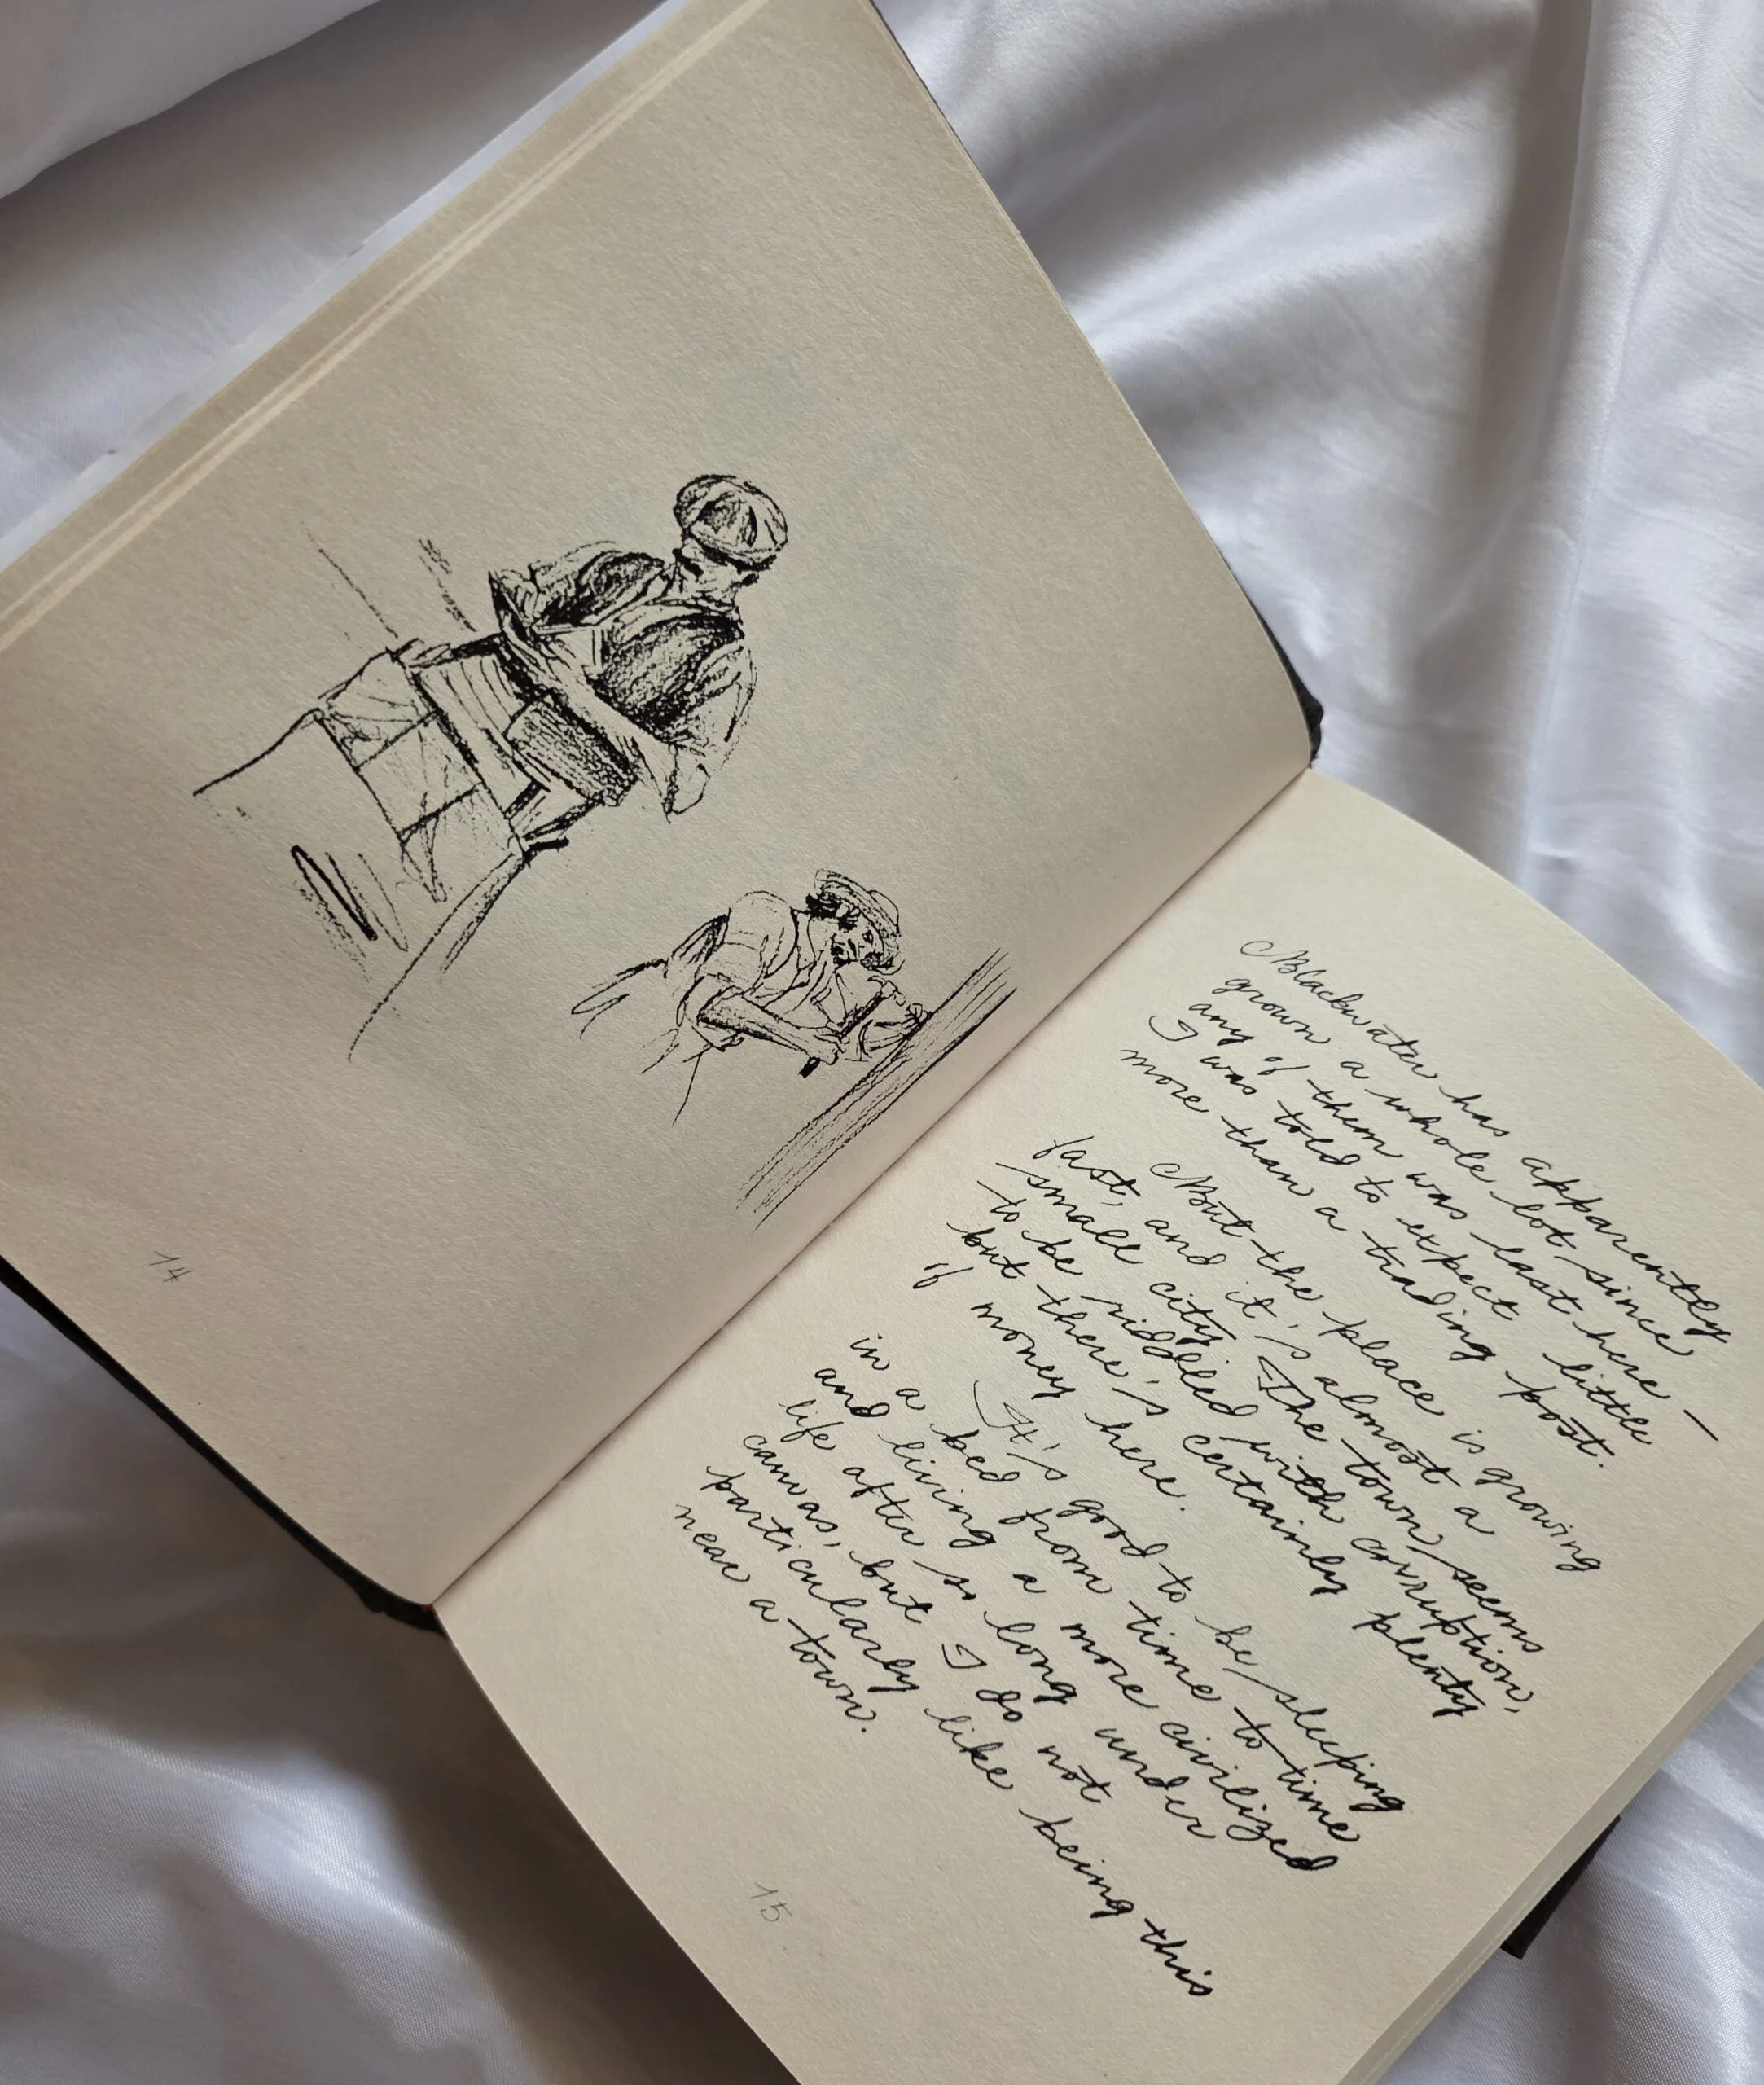 14
Blackwater has apparently
grown a whole lot since
any of them was last here –
I was told to expect little
more than a trading post.
But the place is growing
fast, and it's almost a
small city. The town seems
to be riddled with corruption,
but there's certainly plenty
of money here.
It's good to be sleeping
in a bed from time to time
and living a more civilized
life after so long under
canvas, but I do not
particularly like being this
near a town.
15